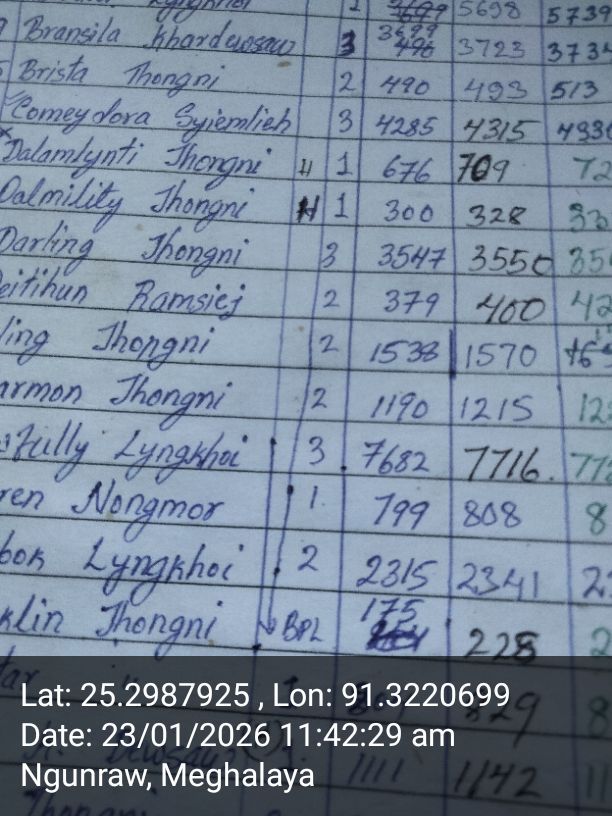 5698 5739
Bransila Khardewsaw 3 3699 3723 3734
Brista Thongni 2 490 493 513
Comeydora Syiemlieh 3 4285 4315
Dalamlynti Thongni H 1 676 709 72
Dalmility Thongni H 1 300 328 33
Darling Thongni 3 3547 3550 355
eitihun Ramsiej 2 379 400 42
ling Thongni 2 1538 1570
armon Thongni 2 1190 1215 12
fully Lyngkhoi 3 7682 7716 77
ren Nongmor 1 799 808 8
bok Lyngkhoi 2 2315 2341 2
klin Thongni BPL 175 228 2
tar 829 8
1111 1142 11
Thongni
Lat: 25.2987925 , Lon: 91.3220699
Date: 23/01/2026 11:42:29 am
Ngunraw, Meghalaya